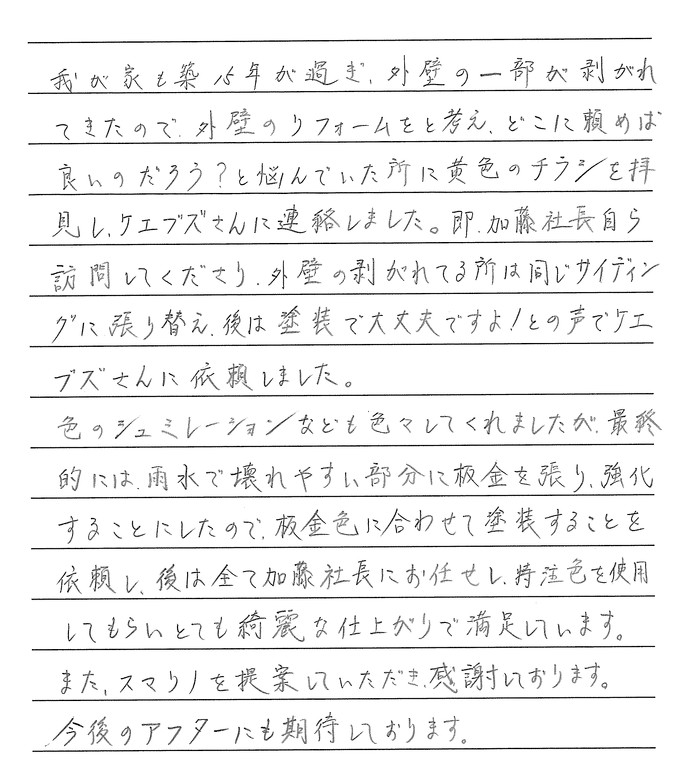 我が家も築15年が過ぎ、外壁の一部が剥がれ
てきたので、外壁のリフォームをと考え、どこに頼めば
良いのだろう？と悩んでいた所に黄色のチラシを拝
見し、ケエブズさんに連絡しました。即、加藤社長自ら
訪問してくださり、外壁の剥がれてる所は同じサイディン
グに張り替え、後は塗装で大丈夫ですよ！との声でケエ
ブズさんに依頼しました。
色のシュミレーションなども色々してくれましたが、最終
的には、雨水で壊れやすい部分に板金を張り、強化
することにしたので、板金色に合わせて塗装することを
依頼し、後は全て加藤社長にお任せし、特注色を使用
してもらいとても綺麗な仕上がりで満足しています。
また、スマリノを提案していただき、感謝しております。
今後のアフターにも期待しております。